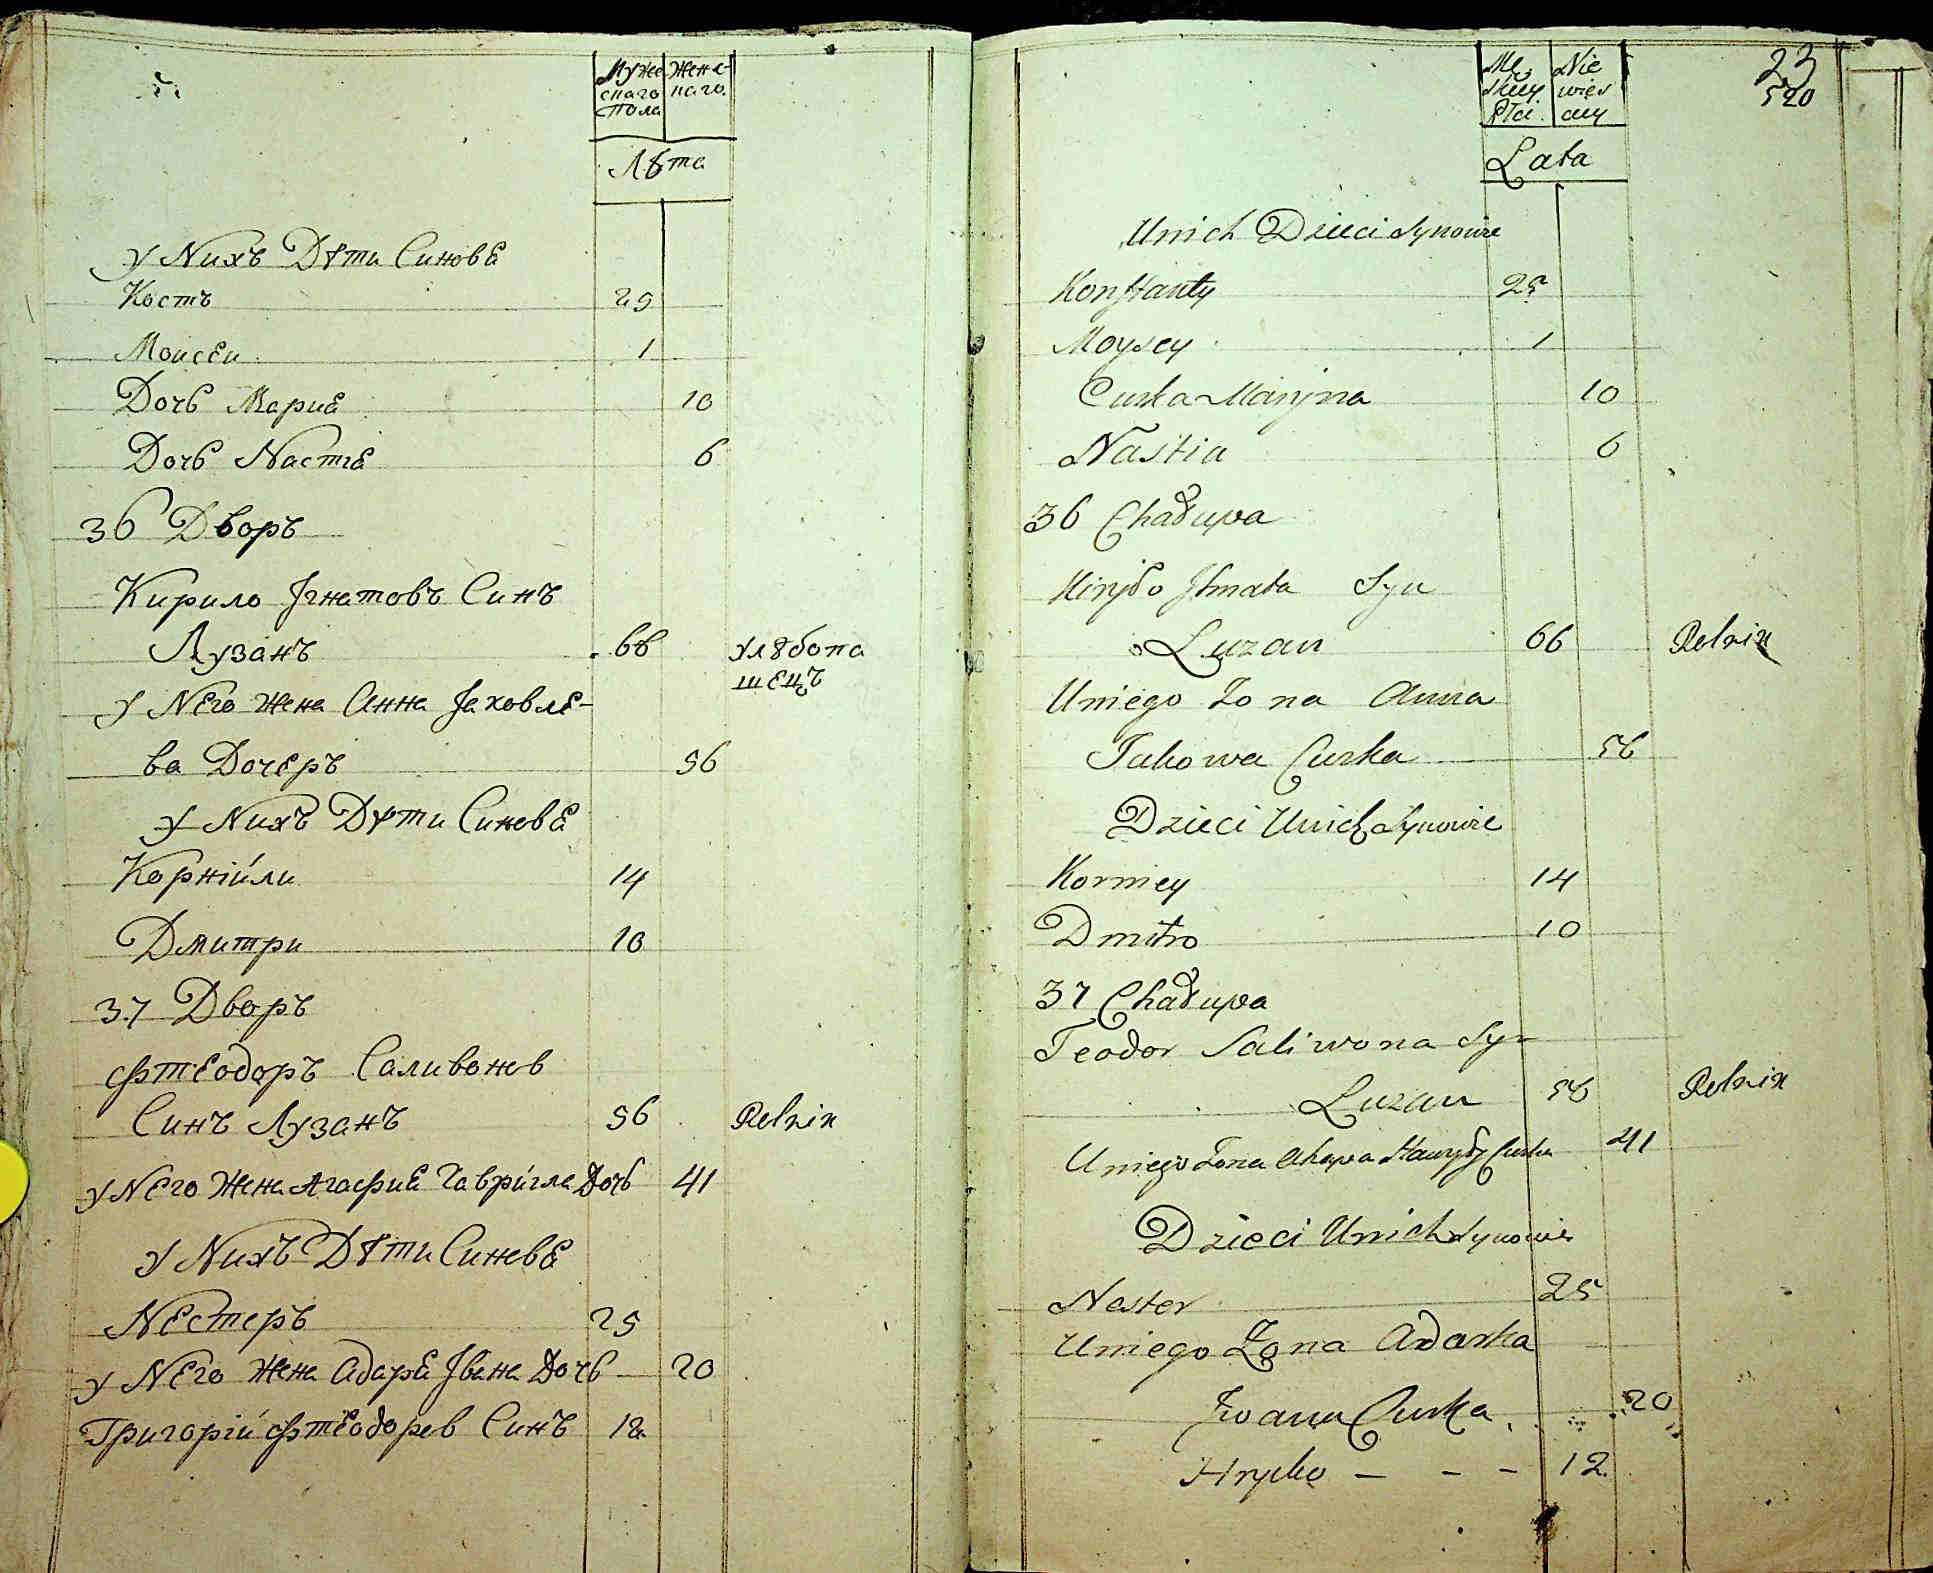 Муже Женс
скаго каго
Пола
Лѣта
у Nихъ Дѣти Синовѣ
Кость 25
Моисеи 1
Дочь Мариѣ 10
Дочь Nастиѣ 6
36 Дворъ
Кирило Iгнатовъ Синъ
Лузанъ 66 хлѣбопа
шецъ
у Nего Жена Анна Jаковле-
ва Дочеръ 56
у Nихъ Дѣти Синовѣ
Корнійли 14
Дмитри 10
37 Дворъ
Фтеодоръ Саливонов
Синъ Лузанъ 56 Rolnik
у Nего Жена Агафиѣ Гавригла Дочь 41
у Nихъ Дѣти Синовѣ
Nестеръ 25
у Nего Жена Адарѣ Iвана Дочь 20
Григорій Фтеодорев Синъ 12
23
520
Mę Nie
skiey wieś
Płci ciey
Lata
Unich Dzieci Synowie
Konstanty 25
Moysey 1
Curka Maryna 10
Nastia 6
36 Chałupa
Kiryło Ihnata Syn
Luzan 66 Rolnik
Uniego Żona Anna
Jakowa Curka 56
Dzieci Unich Synowie
Korniey 14
Dmitro 10
37 Chałupa
Teodor Saliwona Syn
Luzan 56 Rolnik
Uniego Żona Ahapa Hawryły Curka 41
Dzieci Unich Synowie
Nester 25
Uniego Żona Adarka
Iwana Curka 20
Hryćko - - - 12